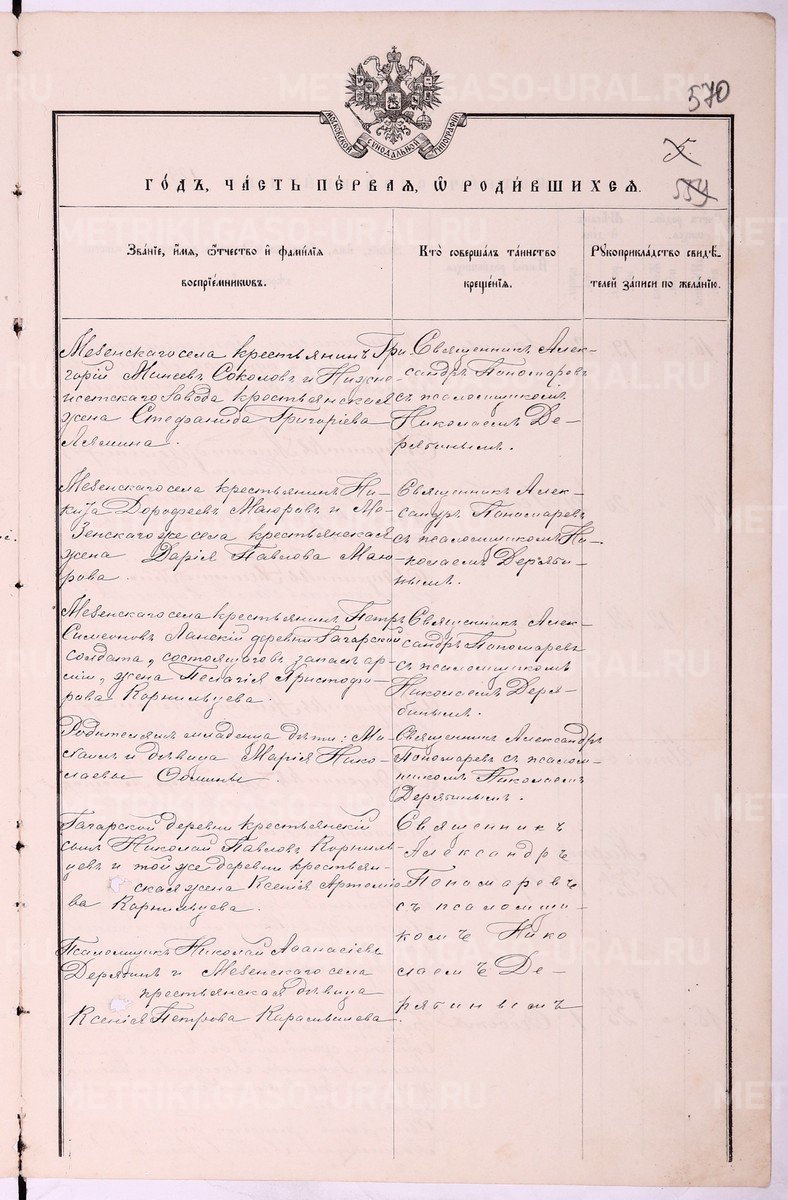 570
МОСКОВСКОЙ СѴНОДАЛЬНОЙ ТИПОГРАФІИ
559
ГО́ДЪ, ЧА́СТЬ ПЕ́РВАЯ, Ѽ РОДИ́ВШИХСЯ.
Зва́нїе, и́мя, ѻ́тчество и҆ фами́лїя
воспрїе́мникѡвъ.
Кто̀ соверша́лъ та́инство
креще́нїя.
Рꙋкоприкла́дство свидѣ́-
телей за́писи по жела́нїю.
Мезенскаго села крестьянинъ Гри-
горій Минеевъ Соколовъ и Нижне-
исетскаго завода крестьянская
жена Стефанида Григоріева
Лямина.
Священникъ Алек-
сандръ Пономаревъ
съ псаломщикомъ
Николаемъ Де-
рягинымъ.
Мезенскаго села крестьянинъ Ни-
кита Дорофеевъ Маюровъ и Ме-
зенскаго же села крестьянская
жена Дарія Павлова Маю-
рова.
Священникъ Алек-
сандръ Пономаревъ
съ псаломщикомъ Ни-
колаемъ Деряги-
нымъ.
Мезенскаго села крестьянинъ Петръ
Симеоновъ Ланскій деревни Гагарской
солдата, состоящаго въ запасѣ ар-
міи, жена Пелагія Христофо-
рова Корнильцева.
Священникъ Алек-
сандръ Пономаревъ
съ псаломщикомъ
Николаемъ Деря-
гинымъ.
Родителямъ младенца дѣти: Ми-
хаилъ и дѣвица Марія Нико-
лаевы
Священникъ Александръ
Пономаревъ съ псалом-
щикомъ Николаемъ
Дерягинымъ.
Гагарской деревни крестьянскій
сынъ Николай Павловъ Корниль-
цевъ и той же деревни крестьян-
ская жена Ксенія Артеміе-
ва Корнильцева.
Священникъ
Александръ
Пономаревъ
съ псаломщи-
комъ Нико
лаемъ Де-
рягинымъ
Псаломщикъ Николай Аѳанасіевъ
Дерягинъ и Мезенскаго села
крестьянская дѣвица
Ксенія Петрова
METRIKI.GASO-URAL.RU